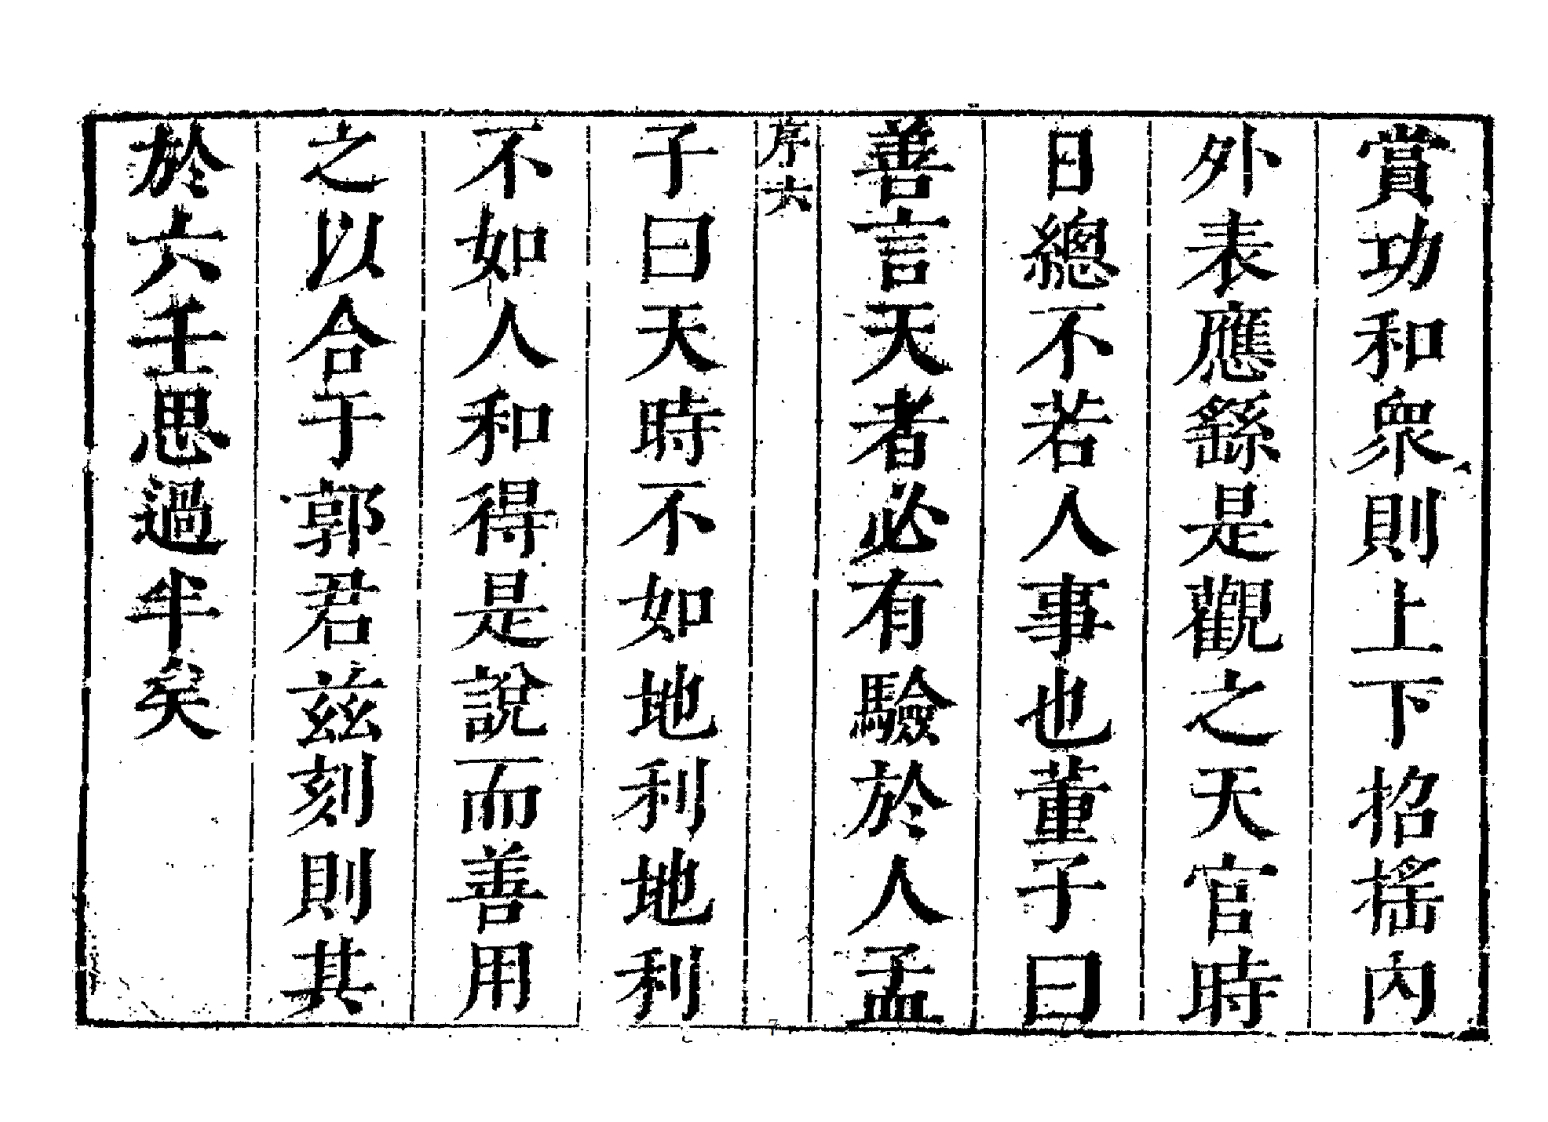 賞功和衆則上下招搖內
外表應繇是觀之天官時
日總不若人事也董子曰
善言天者必有驗於人孟
序六
子曰天時不如地利地利
不如人和得是說而善用
之以合于郭君兹刻則其
於六壬思過半矣